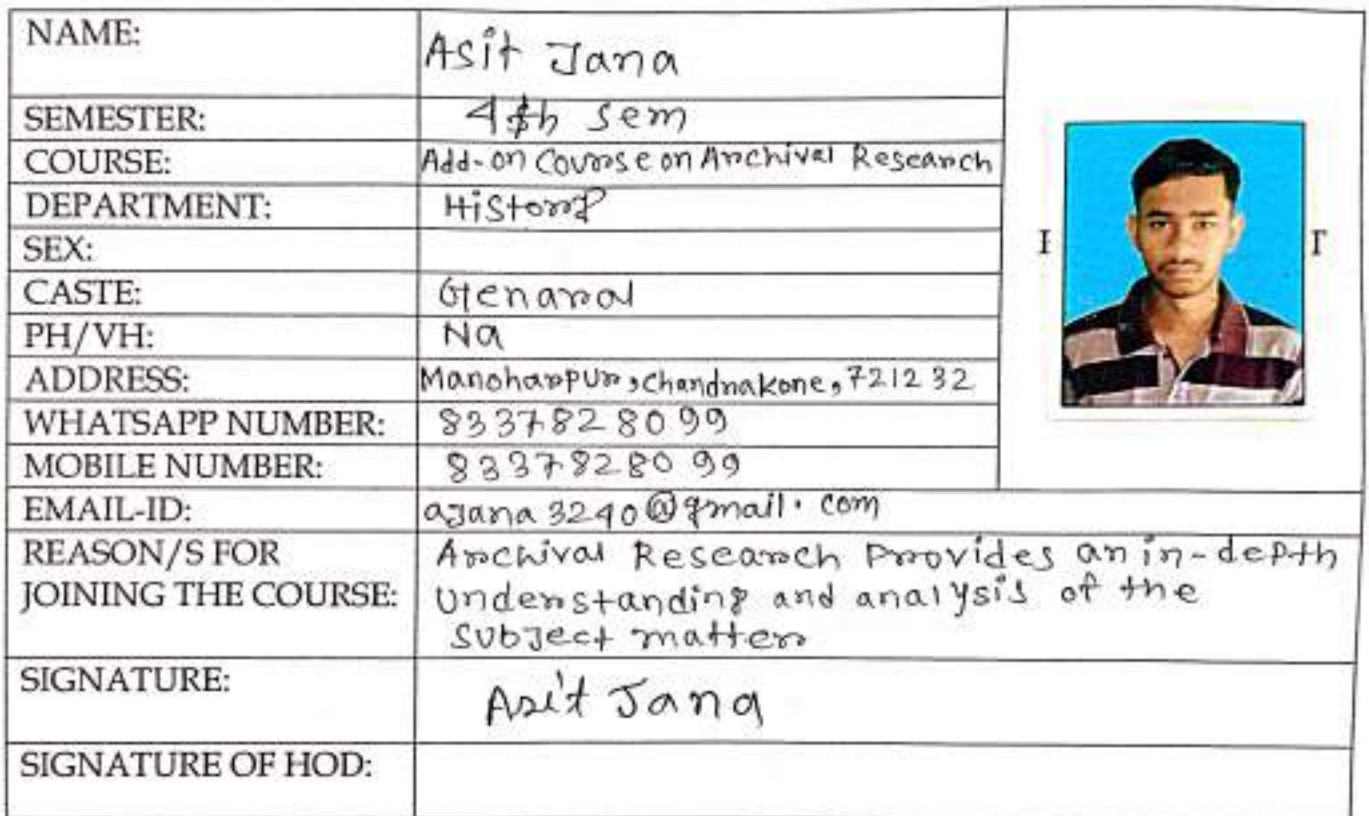 NAME: Asit Jana
SEMESTER: 4th sem
COURSE: Add-on Course on Archival Research
DEPARTMENT: History
SEX:
CASTE: Genaral
PH/VH: Na
ADDRESS: Manoharpur, Chandrakone, 721232
WHATSAPP NUMBER: 8337828099
MOBILE NUMBER: 8337828099
EMAIL-ID: ajana3240@gmail.com
REASON/S FOR Archival Research Provides an in-depth
JOINING THE COURSE: understanding and analysis of the
subject matter
SIGNATURE: Asit Jana
SIGNATURE OF HOD: